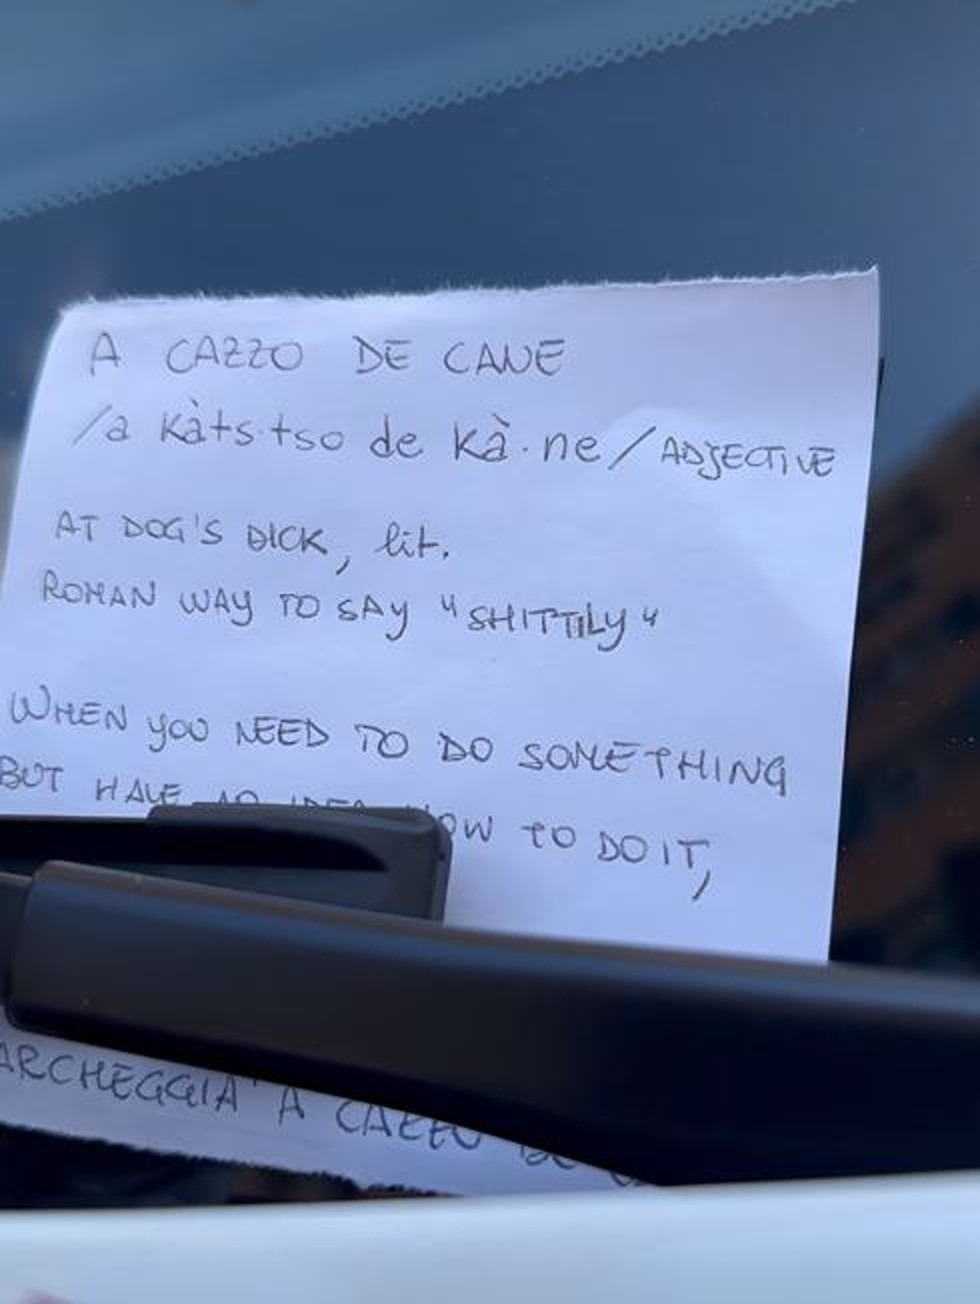 A CAZZO DE CANE
/a kàts·tso de kà·ne/ADJECTIVE
AT DOG'S DICK, lit.
ROMAN WAY TO SAY "SHITTILY"
WHEN YOU NEED TO DO SOMETHING
BUT HAVE NO IDEA HOW TO DO IT,
ARCHEGGIA' A CAZZO DE